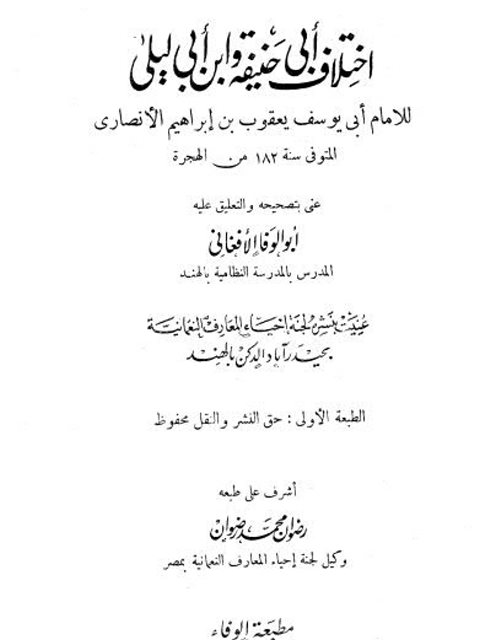 اختلاف أبي حنيفة وابن أبي ليلى
للامام أبى يوسف يعقوب بن إبراهيم الأنصارى
المتوفى سنة ١٨٢ من الهجرة
عنى بتصحيحه والتعليق عليه
أبو الوفا الأفغاني
المدرس بالمدرسة النظامية بالهند
عنيت بنشره لجنة احياء المعارف النعمانية
بحيدر آباد الدكن بالهند
الطبعة الأولى : حق النشر والنقل محفوظ
أشرف على طبعه
رضوان محمد رضوان
وكيل لجنة إحياء المعارف النعمانية بمصر
مطبعة الوفاء